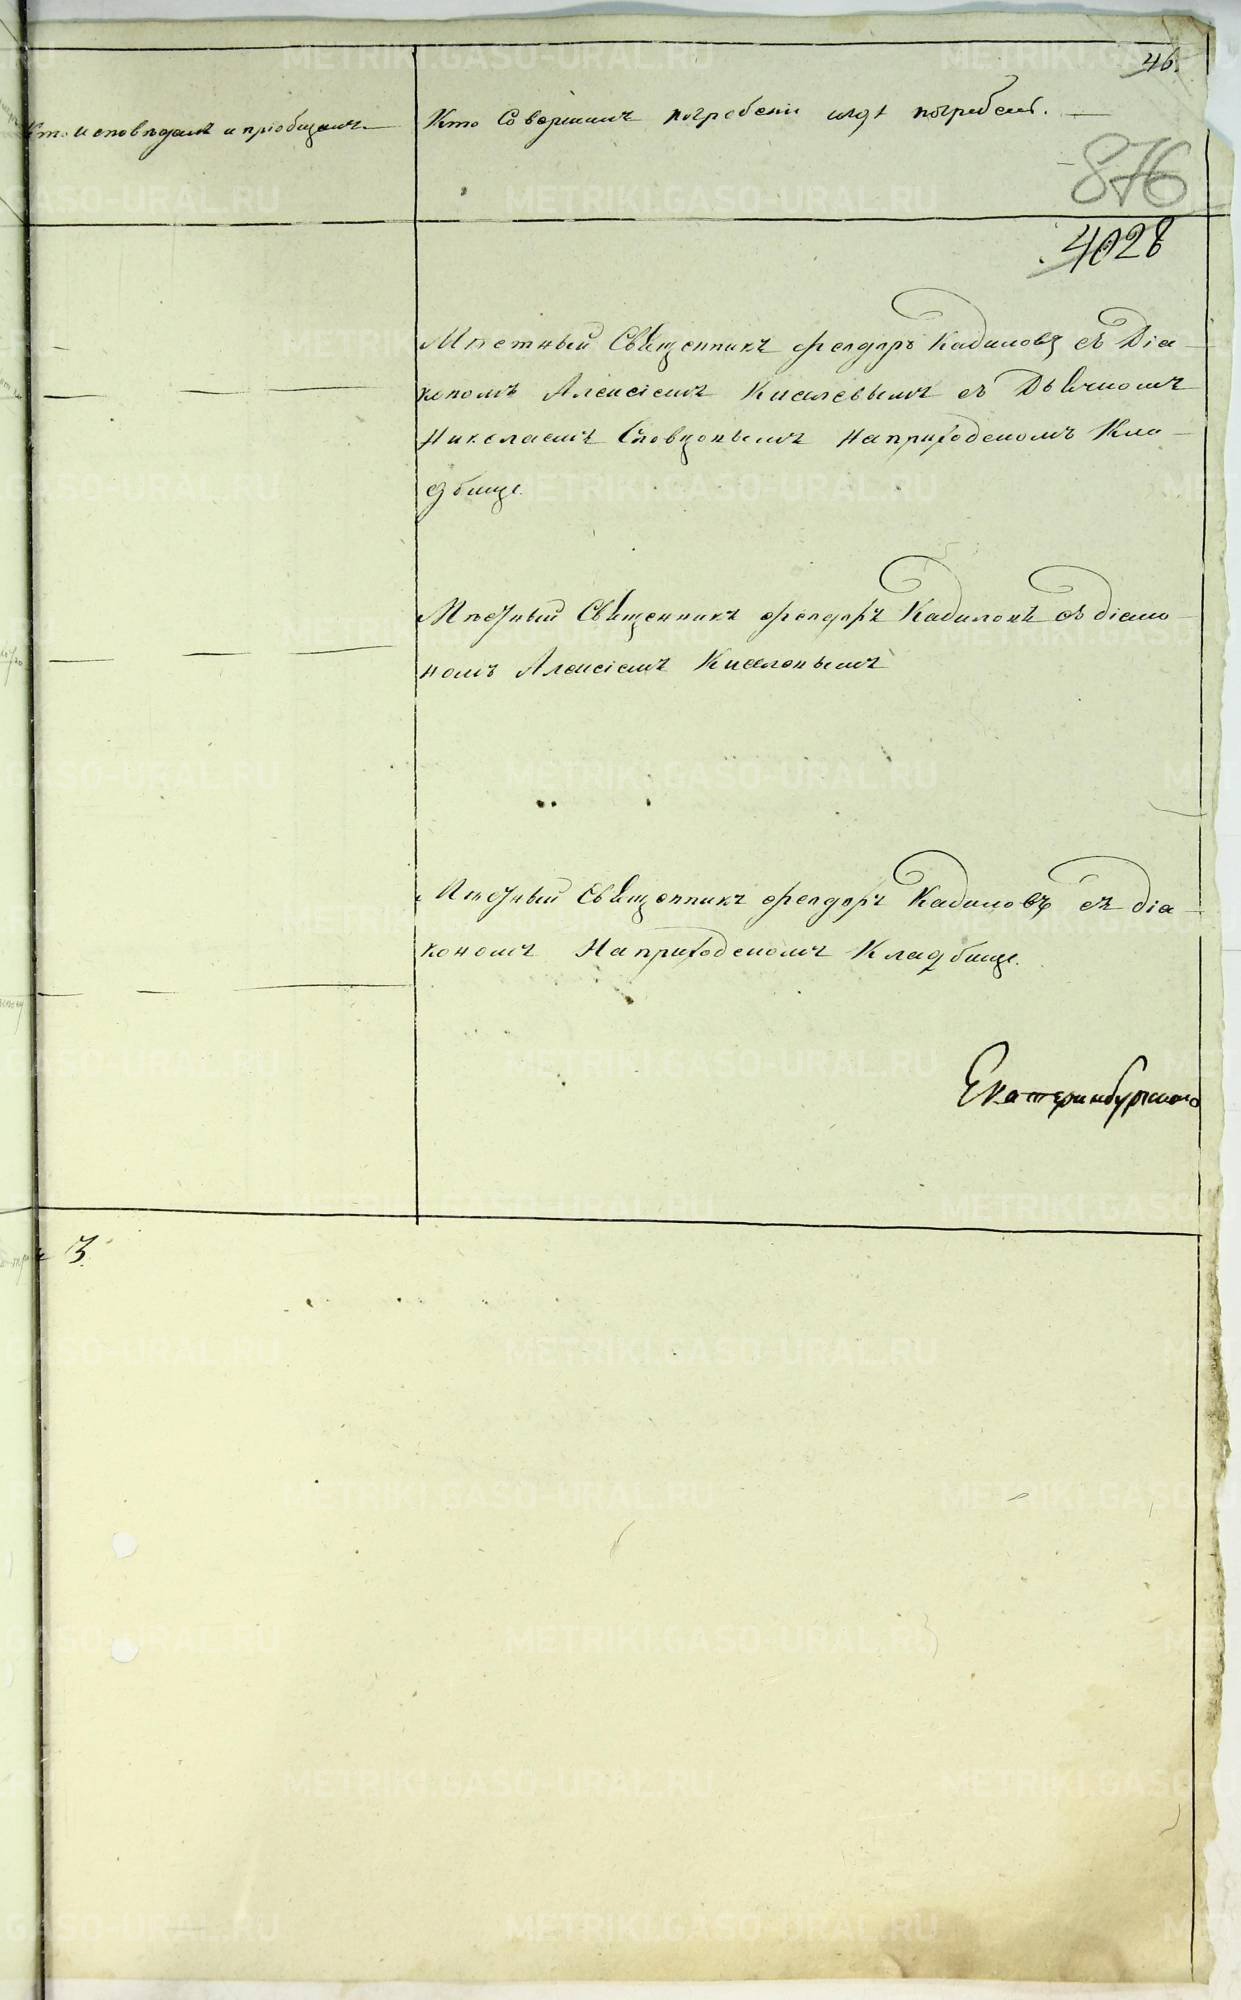 46.
Кто исповѣдалъ и пріобщалъ
Кто Совершилъ погребеніе и гдѣ погребены.
876
4028
Мѣстный Священникъ Феодоръ Кадиловъ съ Діа-
кономъ Алексіемъ Киселевымъ съ Дьячкомъ
Николаемъ Словцовымъ На приходскомъ Кла-
дбище.
Мѣстный Священникъ Феодоръ Кадиловъ съ діако-
номъ Алексіемъ Киселевымъ
Мѣстный Священникъ Феодоръ Кадиловъ съ діа-
кономъ На приходскомъ Кладбище.
Екатеринбургского
3